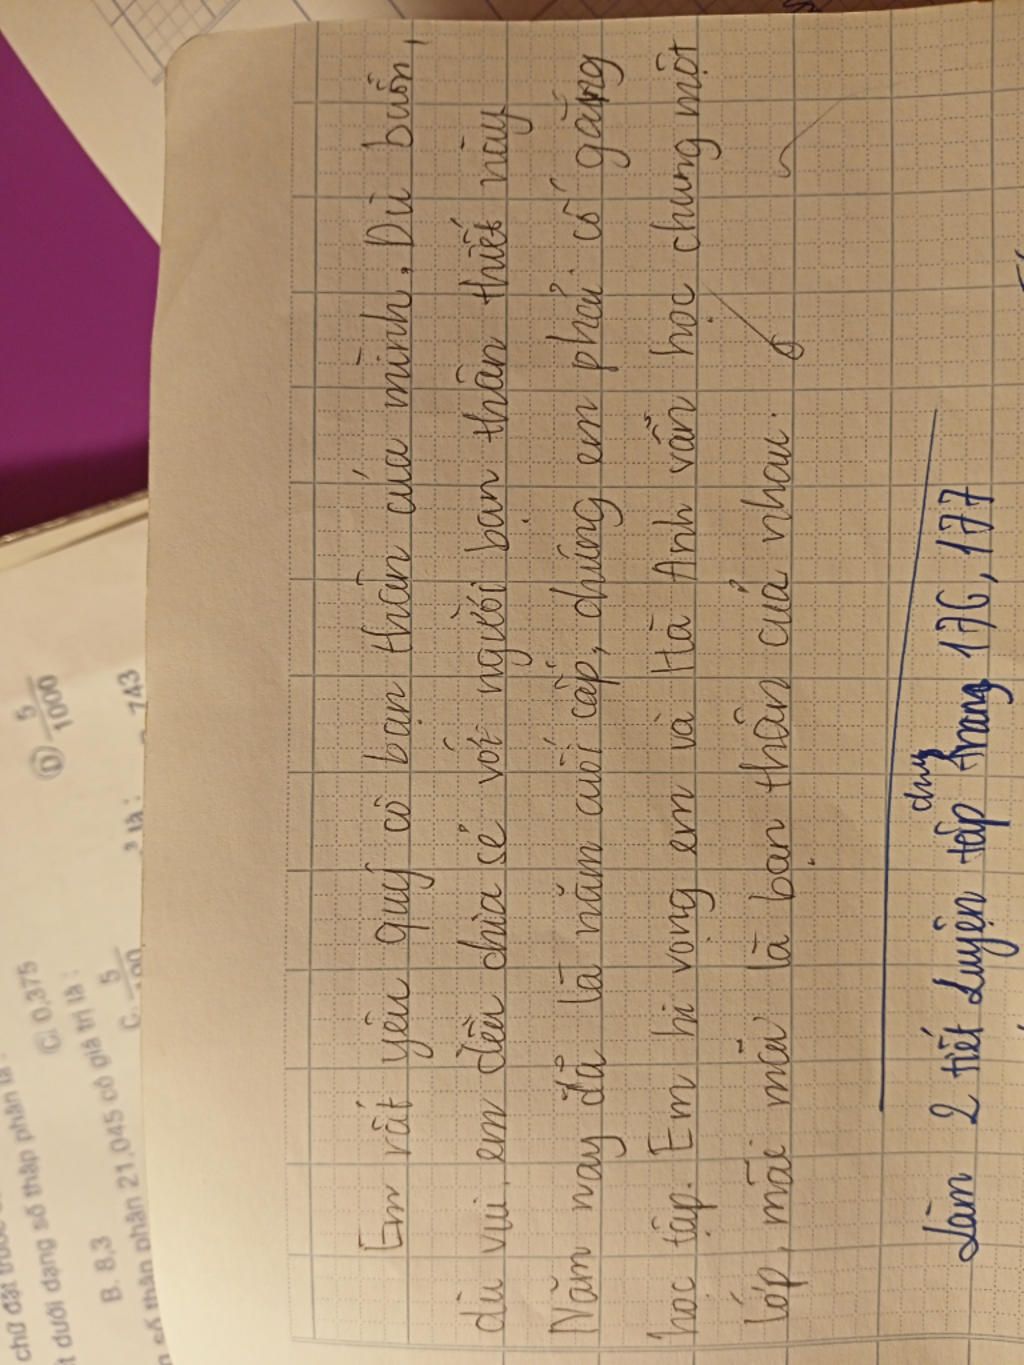 Em rất yêu quý cô bạn thân của mình. Dù buồn,
dù vui, em đều chia sẻ với người bạn thân thiết này
Năm nay đã là năm cuối cấp, chúng em phải cố gắng
học tập. Em hi vọng em và Hà Anh vẫn học chung một
lớp, mãi mãi là bạn thân của nhau.
duy
Làm 2 tiết Luyện tập trang 176, 177
chữ đặt trước
t dưới dạng số thập phân là :
B. 8,3
C. 0,375
D. 5/1000
số thập phân 21,045 có giá trị là :
C. 5/100
là :
743